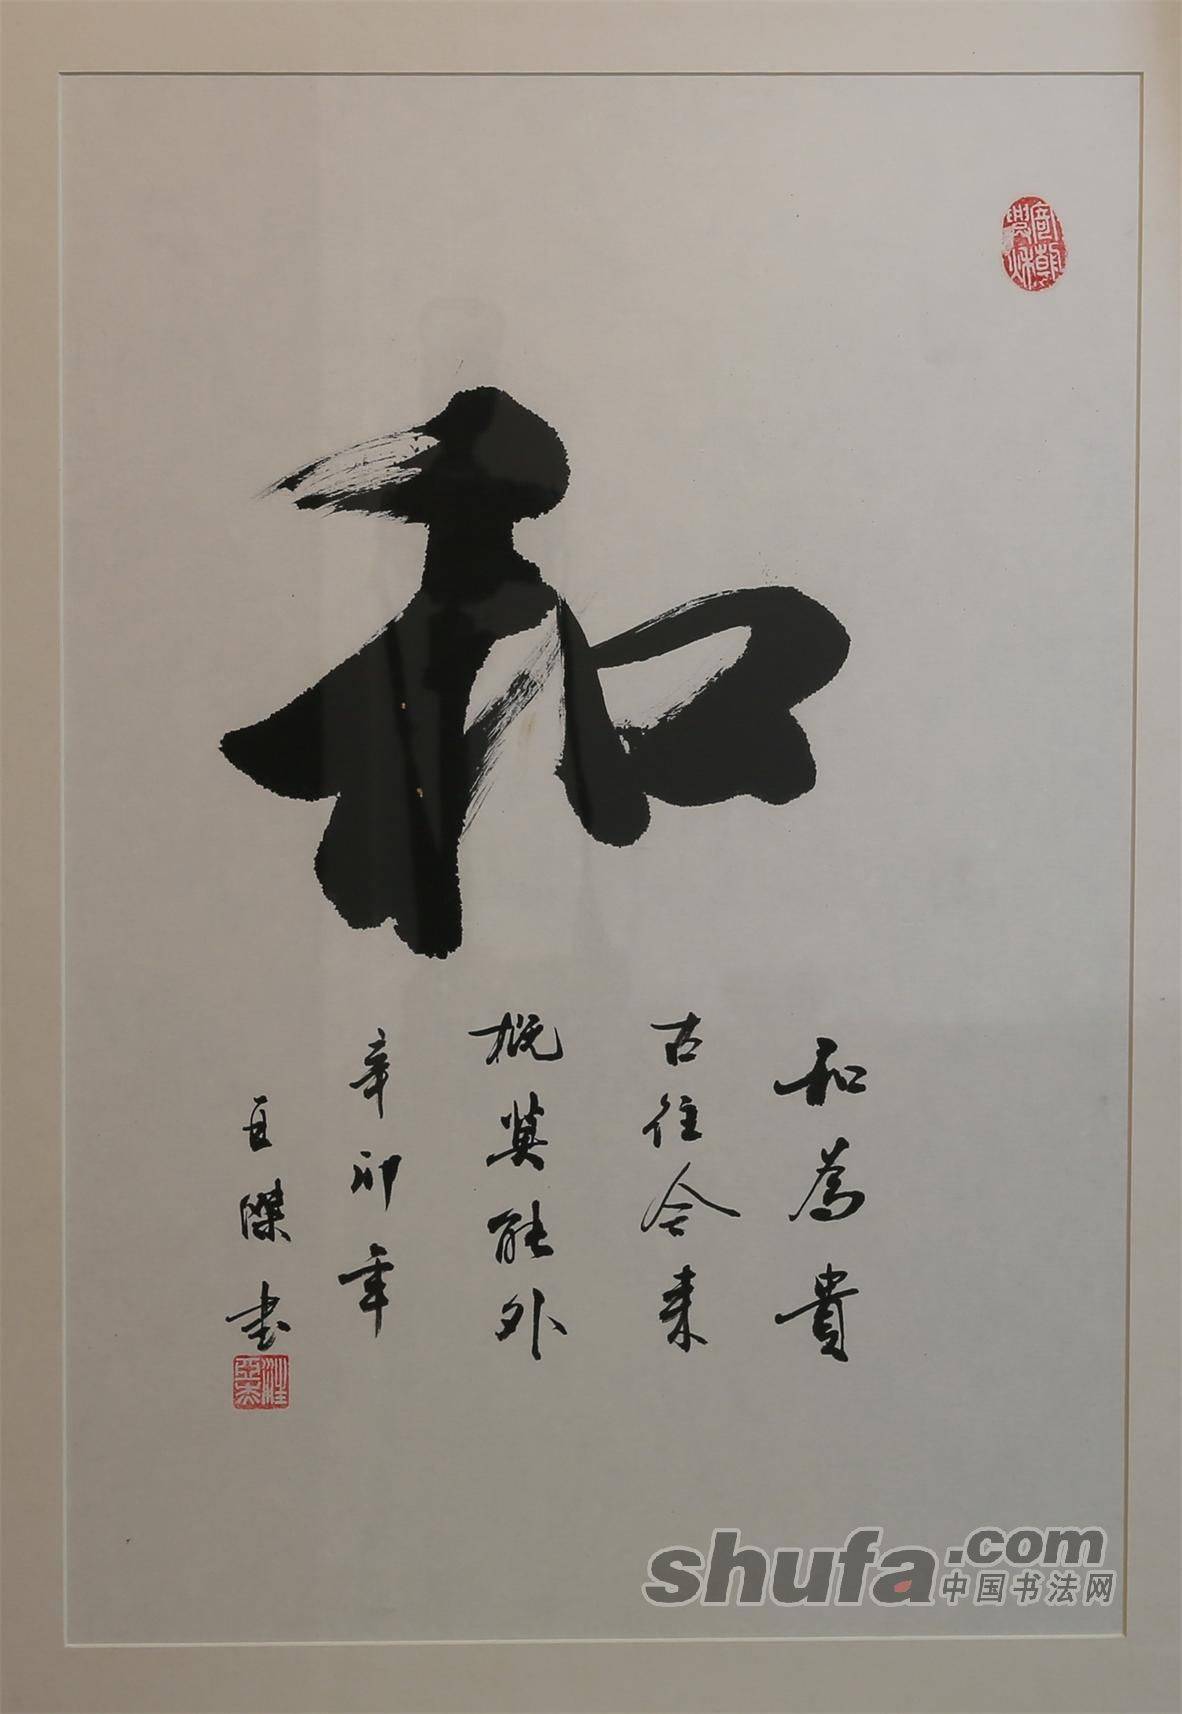 和
和為貴
古往今来
概莫能外
辛卯年
亚傑书
shufa.com
中国书法网